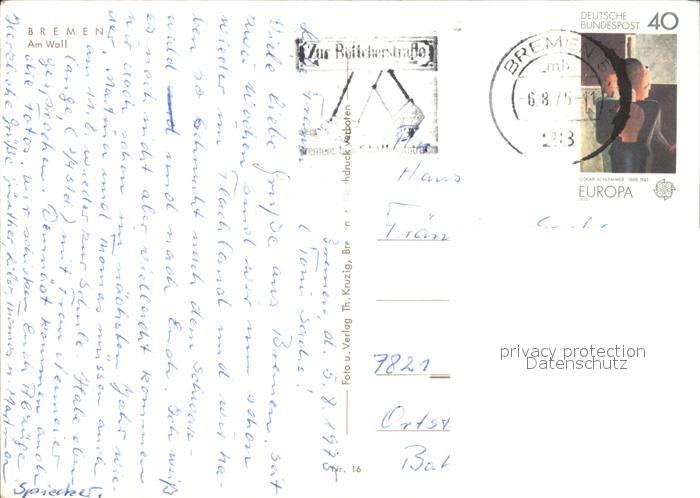 BREMEN
Am Wall
Bremen, d. 5.8.1975
Viele liebe Grüße aus Bremen. Seit
zwei Wochen sind wir nun schon
wieder im Flachland und wir ha-
ben so Sehnsucht nach dem Schwarz-
wald und nach Euch. Ich weiß
es noch nicht aber vielleicht kommen
wir doch schon im nächsten Jahr wie-
der. Martina und Thomas müssen auch
am 11.8. wieder zur Schule. Habe eben
lange mit Frau Neumeier
gesprochen. Demnächst kommen auch
die Fotos. Wir schicken Euch Abzüge
Herzliche Grüße
Spiecker.
Foto u. Verlag Th. Kruzig, Bremen • Nachdruck verboten
Nr. 16
Zur Böttcherstraße
BREMEN
6.8.75-11
28
DEUTSCHE
BUNDESPOST
40
OSKAR SCHLEMMER 1888-1943
EUROPA
1975
Hans
7821
privacy protection
Datenschutz